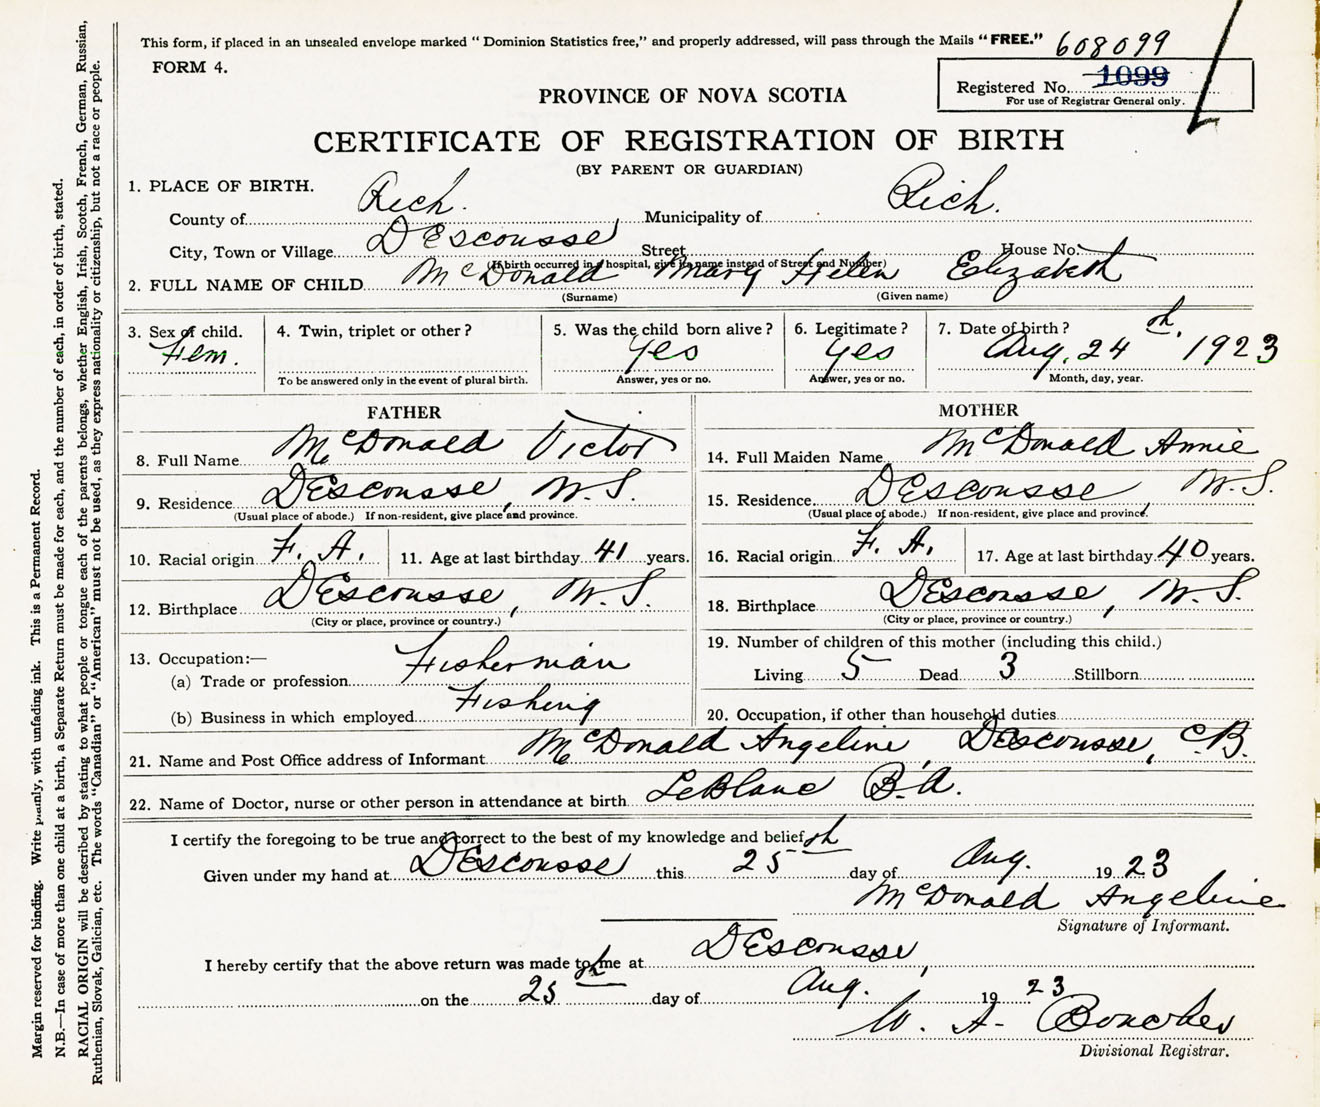 This form, if placed in an unsealed envelope marked "Dominion Statistics free," and properly addressed, will pass through the Mails "FREE." 608099
FORM 4.
Registered No. 1099
For use of Registrar General only.
PROVINCE OF NOVA SCOTIA
CERTIFICATE OF REGISTRATION OF BIRTH
(BY PARENT OR GUARDIAN)
1. PLACE OF BIRTH.
County of Rich. Municipality of Rich.
City, Town or Village DEscousse Street House No.
(If birth occurred in a hospital, give its name instead of Street and Number)
2. FULL NAME OF CHILD McDonald Mary Helen Elizabeth
(Surname) (Given name)
3. Sex of child. 4. Twin, triplet or other? 5. Was the child born alive? 6. Legitimate? 7. Date of birth?
Fem. yes yes Aug. 24th. 1923
To be answered only in the event of plural birth. Answer, yes or no. Answer, yes or no. Month, day, year.
FATHER MOTHER
8. Full Name McDonald Victor 14. Full Maiden Name McDonald Annie
9. Residence DEscousse, N.S. 15. Residence DEscousse, N.S.
(Usual place of abode.) If non-resident, give place and province. (Usual place of abode.) If non-resident, give place and province.
10. Racial origin F. A. 11. Age at last birthday 41 years. 16. Racial origin F. A. 17. Age at last birthday 40 years.
12. Birthplace DEscousse, N.S. 18. Birthplace DEscousse, N.S.
(City or place, province or country.) (City or place, province or country.)
13. Occupation:— 19. Number of children of this mother (including this child.)
(a) Trade or profession Fisherman Living 5 Dead 3 Stillborn
(b) Business in which employed Fishing 20. Occupation, if other than household duties
21. Name and Post Office address of Informant McDonald Angeline, DEscousse, C.B.
22. Name of Doctor, nurse or other person in attendance at birth LeBlanc B.A.
I certify the foregoing to be true and correct to the best of my knowledge and belief
Given under my hand at DEscousse this 25th day of Aug. 1923
McDonald Angeline
Signature of Informant.
I hereby certify that the above return was made to me at DEscousse,
on the 25th day of Aug. 1923
W. A. Boucher
Divisional Registrar.
Margin reserved for binding. Write plainly, with unfading ink. This is a Permanent Record.
N.B.—In case of more than one child at a birth, a Separate Return must be made for each, and the number of each, in order of birth, stated.
RACIAL ORIGIN will be described by stating to what people or tongue each of the parents belongs, whether English, Irish, Scotch, French, German, Russian,
Ruthenian, Slovak, Galician, etc. The words "Canadian" or "American" must not be used, as they express nationality or citizenship, but not a race or people.